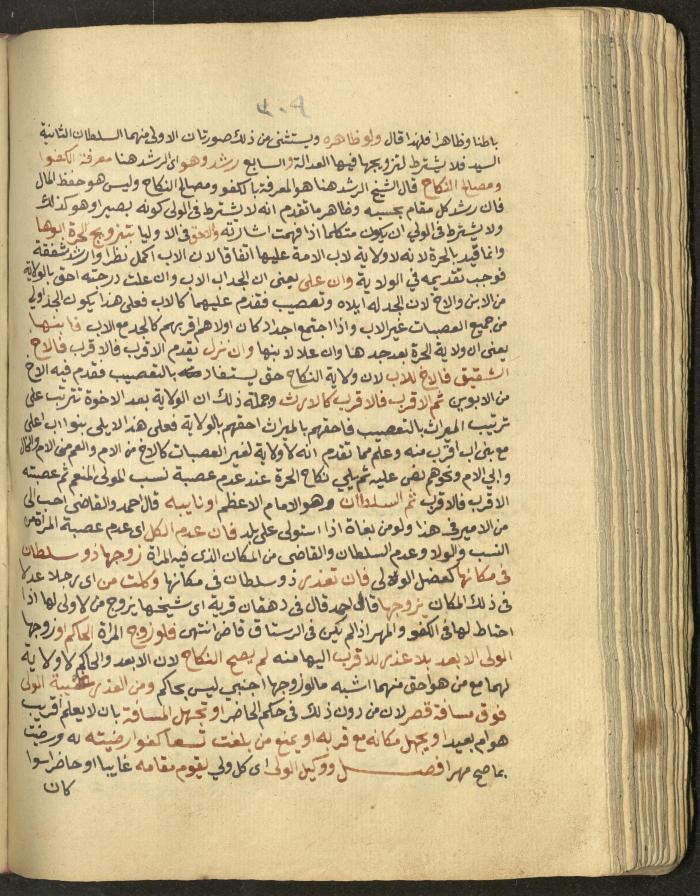 ٣٠٩
باطنا وظاهرا فلهذا قال ولو ظاهره ويستثنى من ذلك صورتان الاولى منهما السلطان الثانية
السيد فلا يشترط لتزويجها فيها العدالة والسابع رشد وهو اى الرشد هنا معرفة الكفوا
ومصالح النكاح قال الشيخ الرشد هنا هو المعرفة بالكفو ومصالح النكاح وليس هو حفظ المال
فان رشد كل مقام بحسبه وظاهر ما تقدم انه لا يشترط فى الولى كونه بصيرا وهو كذلك
ولا يشترط فى الولي ان يكون متكلما اذا فهمت اشارته والاحق فى الاوليا بتزويج الحرة ابوها
وانما قيد بالحرة لانه لا ولاية لاب الامة عليها اتفاقا لان الاب اكمل نظرا وارشد شفقة
فوجب تقديمه في الولاية وان على يعنى ان الجد اب الاب وان علت درجته احق بالولاية
من الابن والاخ لان الجد له ايلاد وتعصيب فقدم عليهما كالاب فعلى هذا يكون الجد اولى
من جميع العصبات غير الاب واذا اجتمع اجداد كان اولاهم اقربهم كالجد مع الاب فابنها
يعنى ان ولاية الحرة بعد جدها وان علا لابنها وان نزل يقدم الاقرب فالاقرب فالاخ
الشقيق فالاخ للاب لان ولاية النكاح حق يستفاد بالتعصيب فقدم فيه الاخ
من الابوين ثم الاقرب فالاقرب كالارث وجملة ذلك ان الولاية بعد الاخوة تترتب على
ترتيب الميراث بالتعصيب فاحقهم بالميراث احقهم بالولاية فعلى هذا لا يلى بنوا اب اعلى
مع بنى اب اقرب منه وعلم مما تقدم انه لا ولاية لغير العصبات كالاخ من الام والعم من الام والخال
وابى الام ونحوهم نص عليه ثم يلي نكاح الحرة عند عدم عصبة نسب المولى المنعم ثم عصبته
الاقرب فالاقرب ثم السلطان وهو الامام الاعظم او نايبه قال احمد والقاضى احب الى
من الامير فى هذا ولو من بغاة اذا استولى على بلد فان عدم الكل اى عدم عصبة المراة من
النسب والولا وعدم السلطان والقاضى من المكان الذى فيه المراة زوجها ذو سلطان
فى مكانها كعضل الولى فان تعذر ذو سلطان فى مكانها وكلت من اى رجلا عدلا
فى ذلك المكان يزوجها قال احمد قال فى دهقان قرية اى شيخها يزوج من لا ولى لها اذا
احتاط لها فى الكفو والمهر اذا لم يكن فى الرستاق قاض انتهى فلو زوج المراة الحاكم او زوجها
الولى الابعد بلا عذر للاقرب اليها منه لم يصح النكاح لان الابعد والحاكم لا ولاية
لهما مع من هو احق منهما اشبه ما لو زوجها اجنبي ليس بحاكم ومن العذر غيبة الولى
فوق مسافة قصر لان من دون ذلك فى حكم الحاضر او تجهل المسافة بان لا يعلم اقريب
هو ام بعيد او يجهل مكانه مع قربه او يمنع من بلغت تسعا كفوا رضيته له ورضيت
بما صح مهرا فصل ووكيل الولى اى كل ولي يقوم مقامه غايبا او حاضرا سوا
كان